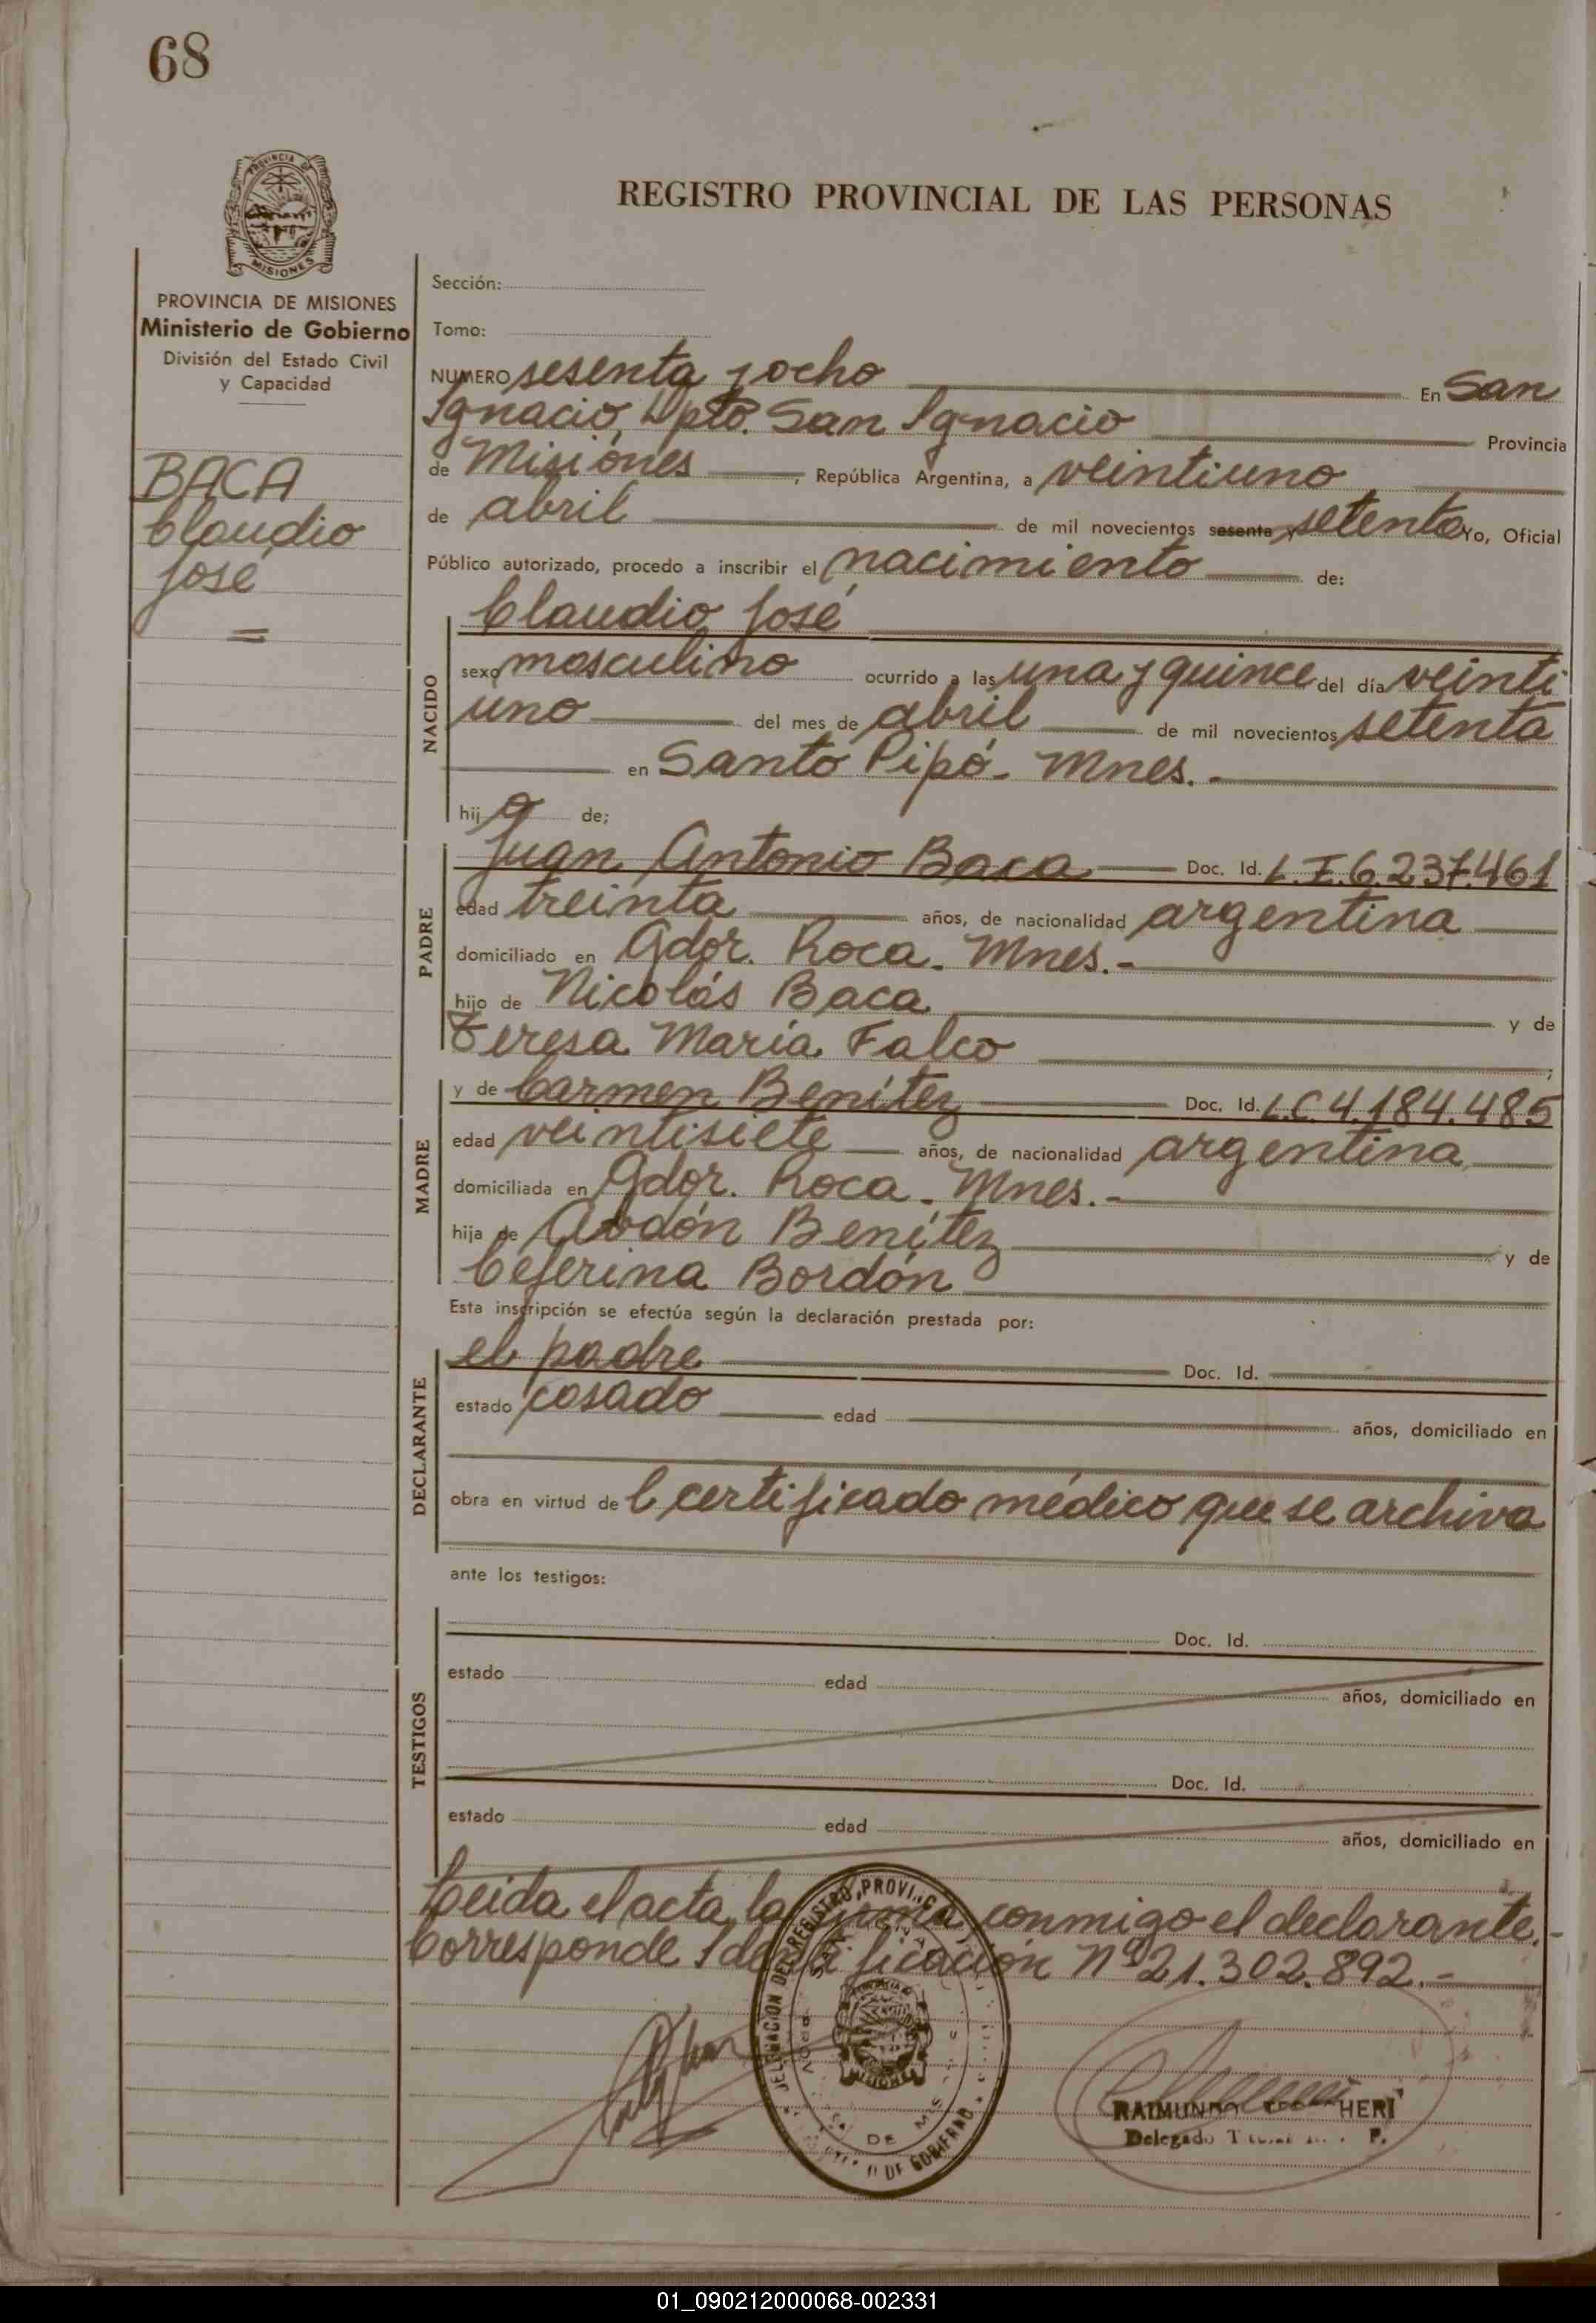 68
PROVINCIA DE
MISIONES
REGISTRO PROVINCIAL DE LAS PERSONAS
PROVINCIA DE MISIONES
Ministerio de Gobierno
División del Estado Civil
y Capacidad
BACA
Claudio
José
Sección:
Tomo:
NUMERO sesenta y ocho En San
Ignacio, Dpto. San Ignacio Provincia
de Misiones, República Argentina, a veintiuno
de abril de mil novecientos sesenta y setenta Yo, Oficial
Público autorizado, procedo a inscribir el nacimiento de:
NACIDO
Claudio José
sexo masculino ocurrido a las una y quince del día veinti
uno del mes de abril de mil novecientos setenta
en Santo Pipó - Mnes. -
hijo de;
PADRE
Juan Antonio Baca Doc. Id. L.E. 6.237.461
edad treinta años, de nacionalidad argentina
domiciliado en Gdor. Roca - Mnes. -
hijo de Nicolás Baca y de
Teresa María Falco
MADRE
y de Carmen Benítez Doc. Id. L.C. 4.184.485
edad veintisiete años, de nacionalidad argentina
domiciliada en Gdor. Roca - Mnes. -
hija de Abdón Benítez y de
Ceferina Bordón
Esta inscripción se efectúa según la declaración prestada por:
DECLARANTE
el padre Doc. Id.
estado casado edad años, domiciliado en
obra en virtud del certificado médico que se archiva
ante los testigos:
TESTIGOS
Doc. Id.
estado edad años, domiciliado en
Doc. Id.
estado edad años, domiciliado en
Leída el acta, la firma conmigo el declarante. -
Corresponde Identificación Nº 21.302.892. -
DELEGACION DEL REGISTRO PROVINCIAL
DE GOBIERNO
MISIONES
RAIMUNDO HERI
Delegado
01_090212000068-002331